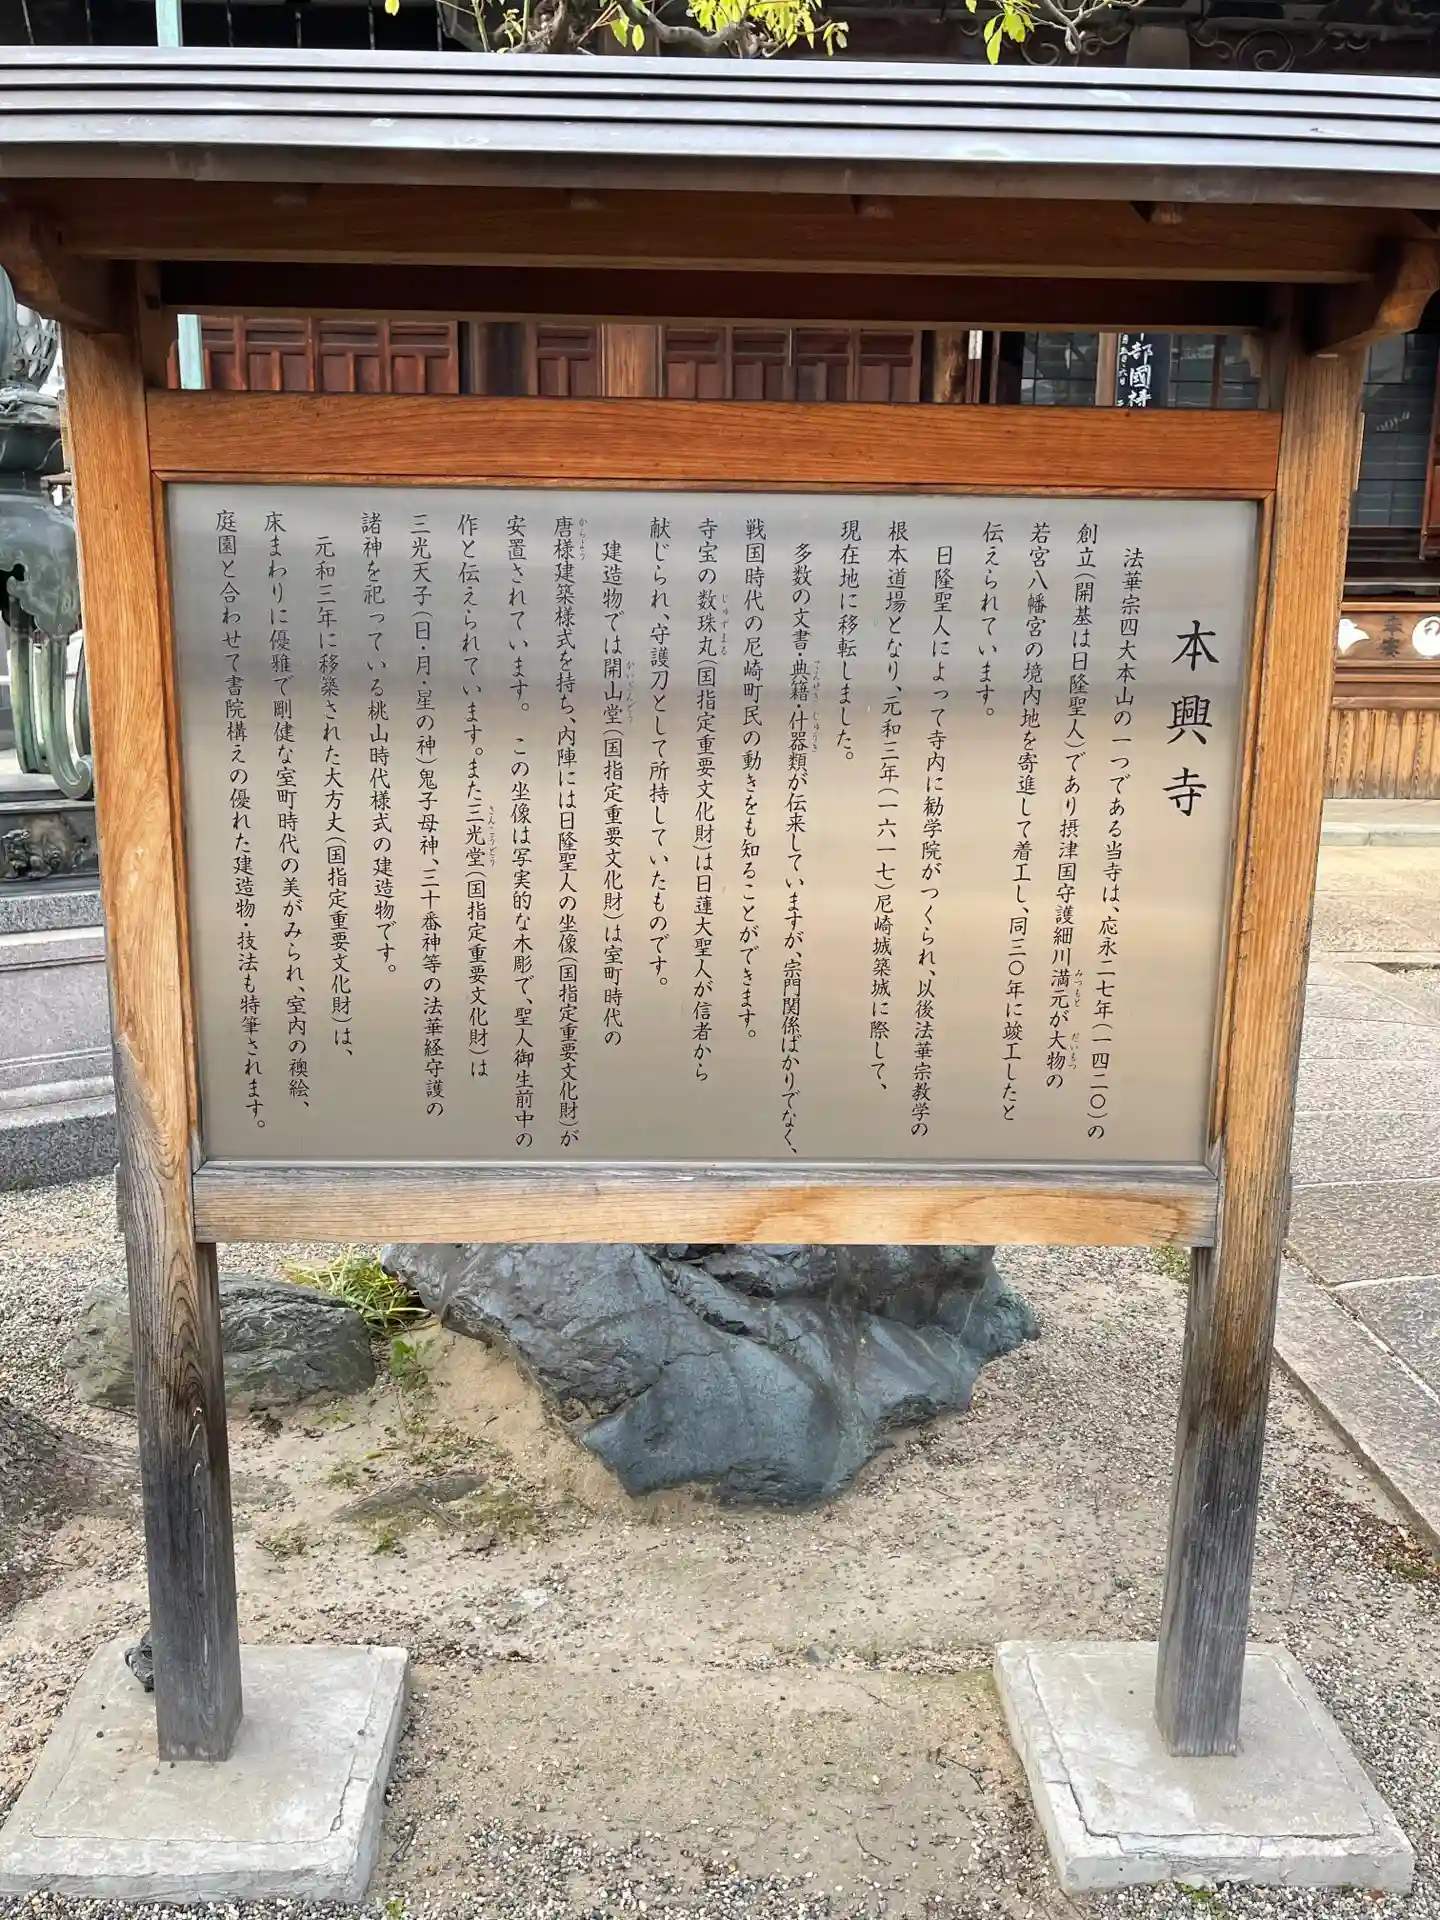 本興寺
法華宗四大本山の一つである当寺は、応永二七年(一四二〇)の
創立(開基は日隆聖人)であり摂津国守護細川満元が大物の
若宮八幡宮の境内地を寄進して着工し、同三〇年に竣工したと
伝えられています。
日隆聖人によって寺内に勧学院がつくられ、以後法華宗教学の
根本道場となり、元和三年(一六一七)尼崎城築城に際して、
現在地に移転しました。
多数の文書・典籍・什器類が伝来していますが、宗門関係ばかりでなく、
戦国時代の尼崎町民の動きをも知ることができます。
寺宝の数珠丸(国指定重要文化財)は日蓮大聖人が信者から
献じられ、守護刀として所持していたものです。
建造物では開山堂(国指定重要文化財)は室町時代の
唐様建築様式を持ち、内陣には日隆聖人の坐像(国指定重要文化財)が
安置されています。 この坐像は写実的な木彫で、聖人御生前中の
作と伝えられています。また三光堂(国指定重要文化財)は
三光天子(日・月・星の神)鬼子母神、三十番神等の法華経守護の
諸神を祀っている桃山時代様式の建造物です。
元和三年に移築された大方丈(国指定重要文化財)は、
床まわりに優雅で剛健な室町時代の美がみられ、室内の襖絵、
庭園と合わせて書院構えの優れた建造物・技法も特筆されます。